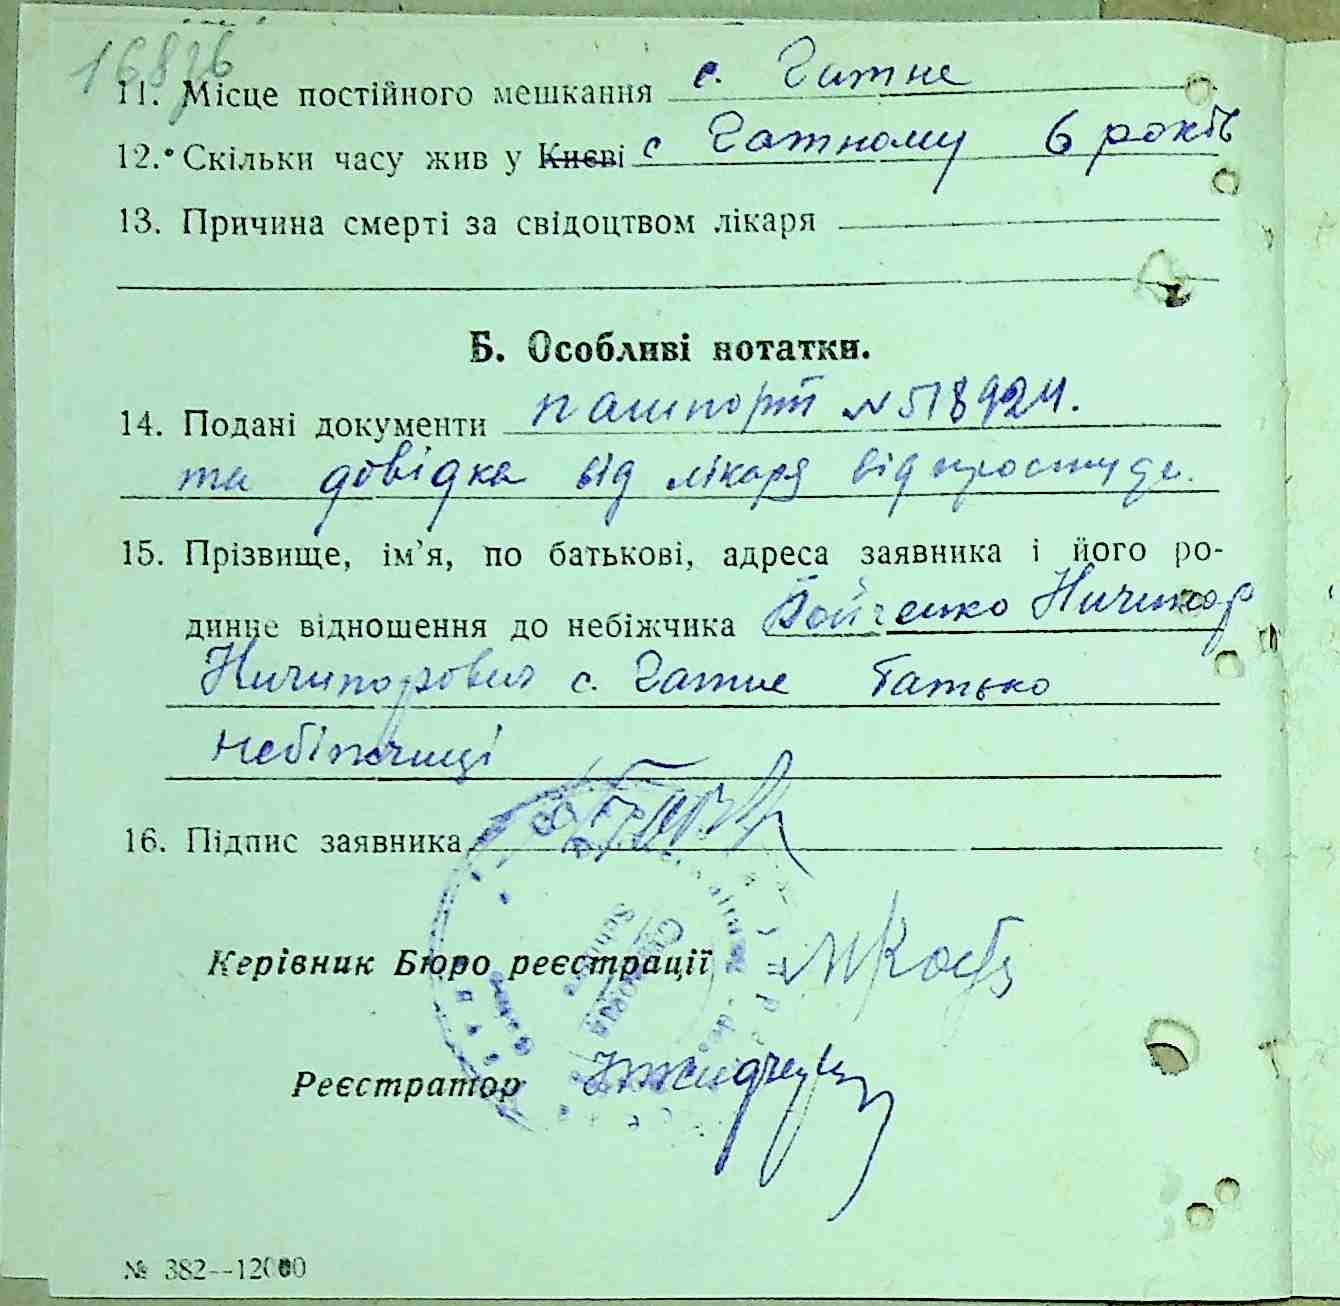 168
11. Місце постійного мешкання с. Гатне
12. Скільки часу жив у Києві с Гатному 6 років
13. Причина смерті за свідоцтвом лікаря
Б. Особливі нотатки.
14. Подані документи пашпорт №518924.
та довідка від лікаря від простуде.
15. Прізвище, ім'я, по батькові, адреса заявника і його ро-
динне відношення до небіжчика Бойченко Ничипор
Ничипорович с. Гатне батько
небіжчиці
16. Підпис заявника
Керівник Бюро реєстрації
Реєстратор
№ 382--12000